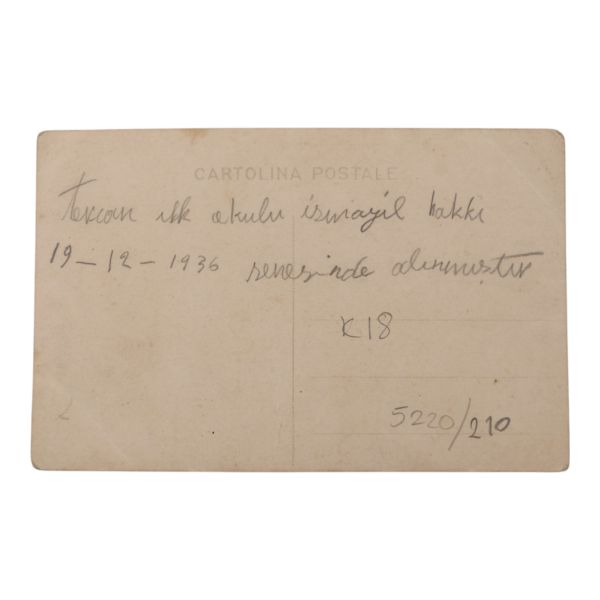 CARTOLINA POSTALE
Tercan ilk okulu ismayil hakkı
19-12-1936 senesinde alınmıştır
K18
5220/210